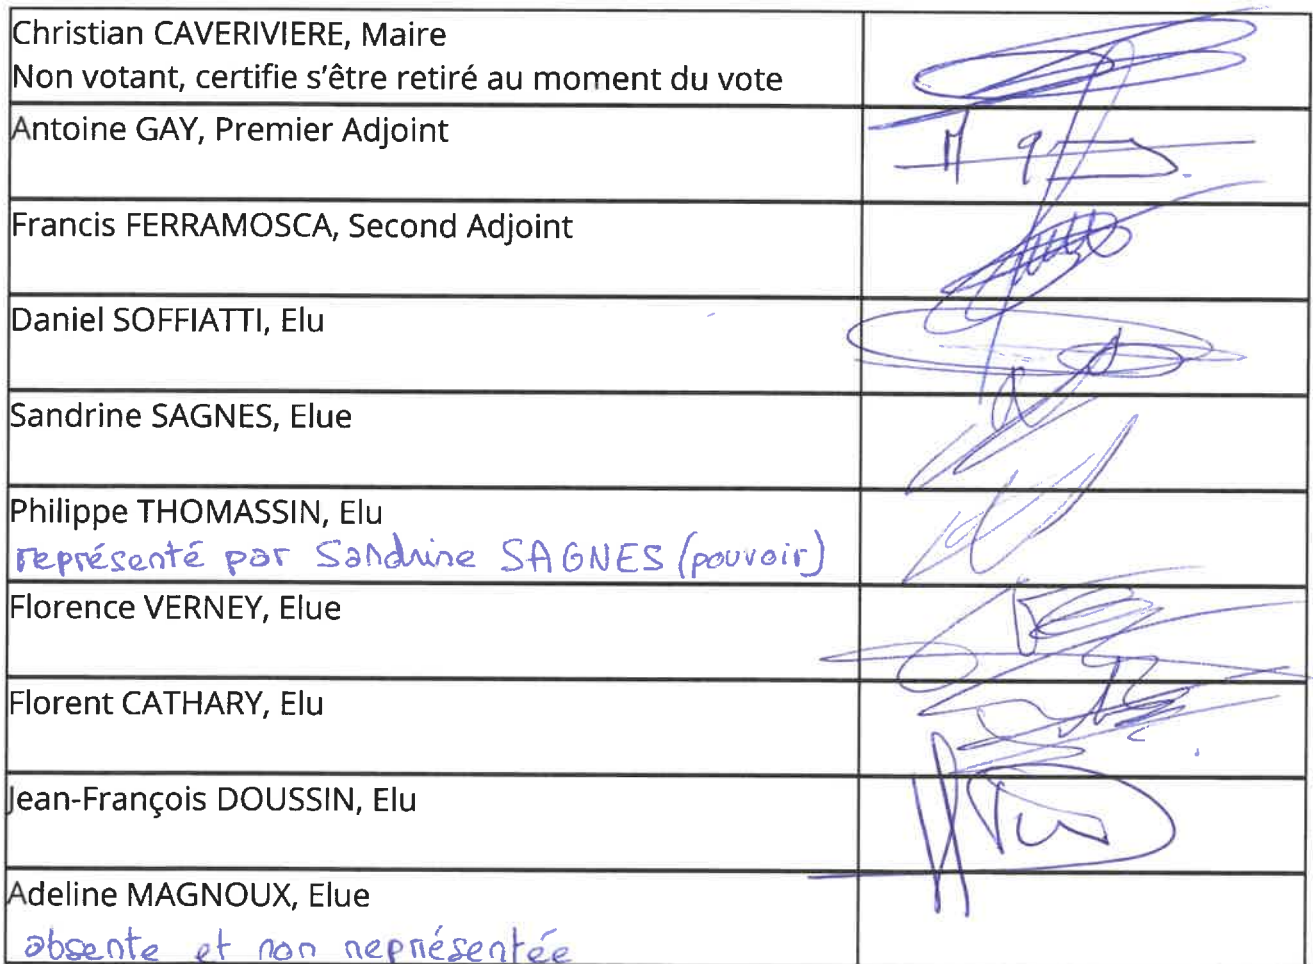 Christian CAVERIVIERE, Maire
Non votant, certifie s'être retiré au moment du vote
Antoine GAY, Premier Adjoint
Francis FERRAMOSCA, Second Adjoint
Daniel SOFFIATTI, Elu
Sandrine SAGNES, Elue
Philippe THOMASSIN, Elu
représenté par Sandrine SAGNES (pouvoir)
Florence VERNEY, Elue
Florent CATHARY, Elu
Jean-François DOUSSIN, Elu
Adeline MAGNOUX, Elue
absente et non représentée